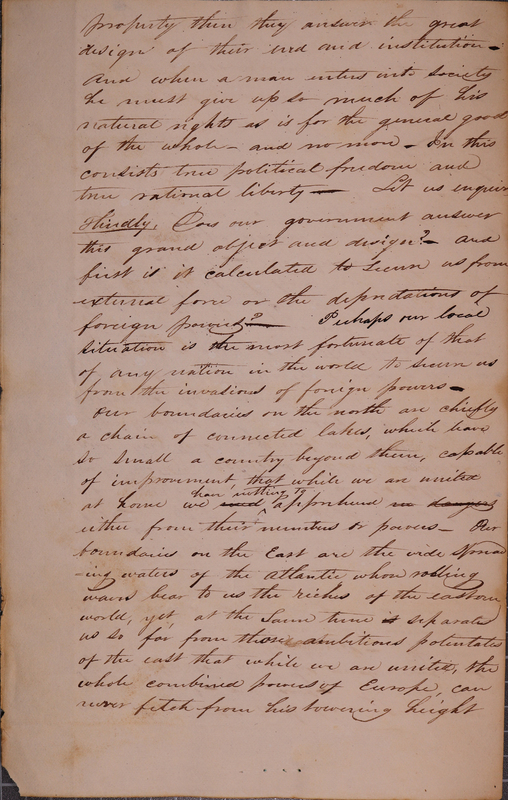 property then they answer the great
design of their end and institution -
And when a man enters into society
he must give up so much of his
natural rights as is for the general good
of the whole - and no more - In this
consists true political freedom and
true rational liberty - Let us enquire
2dly, Does our government answer
this grand object and design? - And
first is it calculated to secure us from
external force or the depredations of
foreign powers? - Perhaps our local
situation is the most fortunate of that
of any nation in the world to secure us
from the invasions of foreign powers -
Our boundaries on the north are chiefly
a chain of connected lakes, which have
so small a country beyond them, capable
of improvement, that while we are united
have nothing to
at home we need apprehend no danger
either from their numbers or powers - Our
boundaries on the East are the wide spread
-ing waters of the Atlantic whose rolling
waves bear to us the riches of the eastern
world, yet, at the same time is separates
us so far from those ambitious potentates
of the east that while we are united, the
whole combined powers of Europe, can
never fetch from his towering height